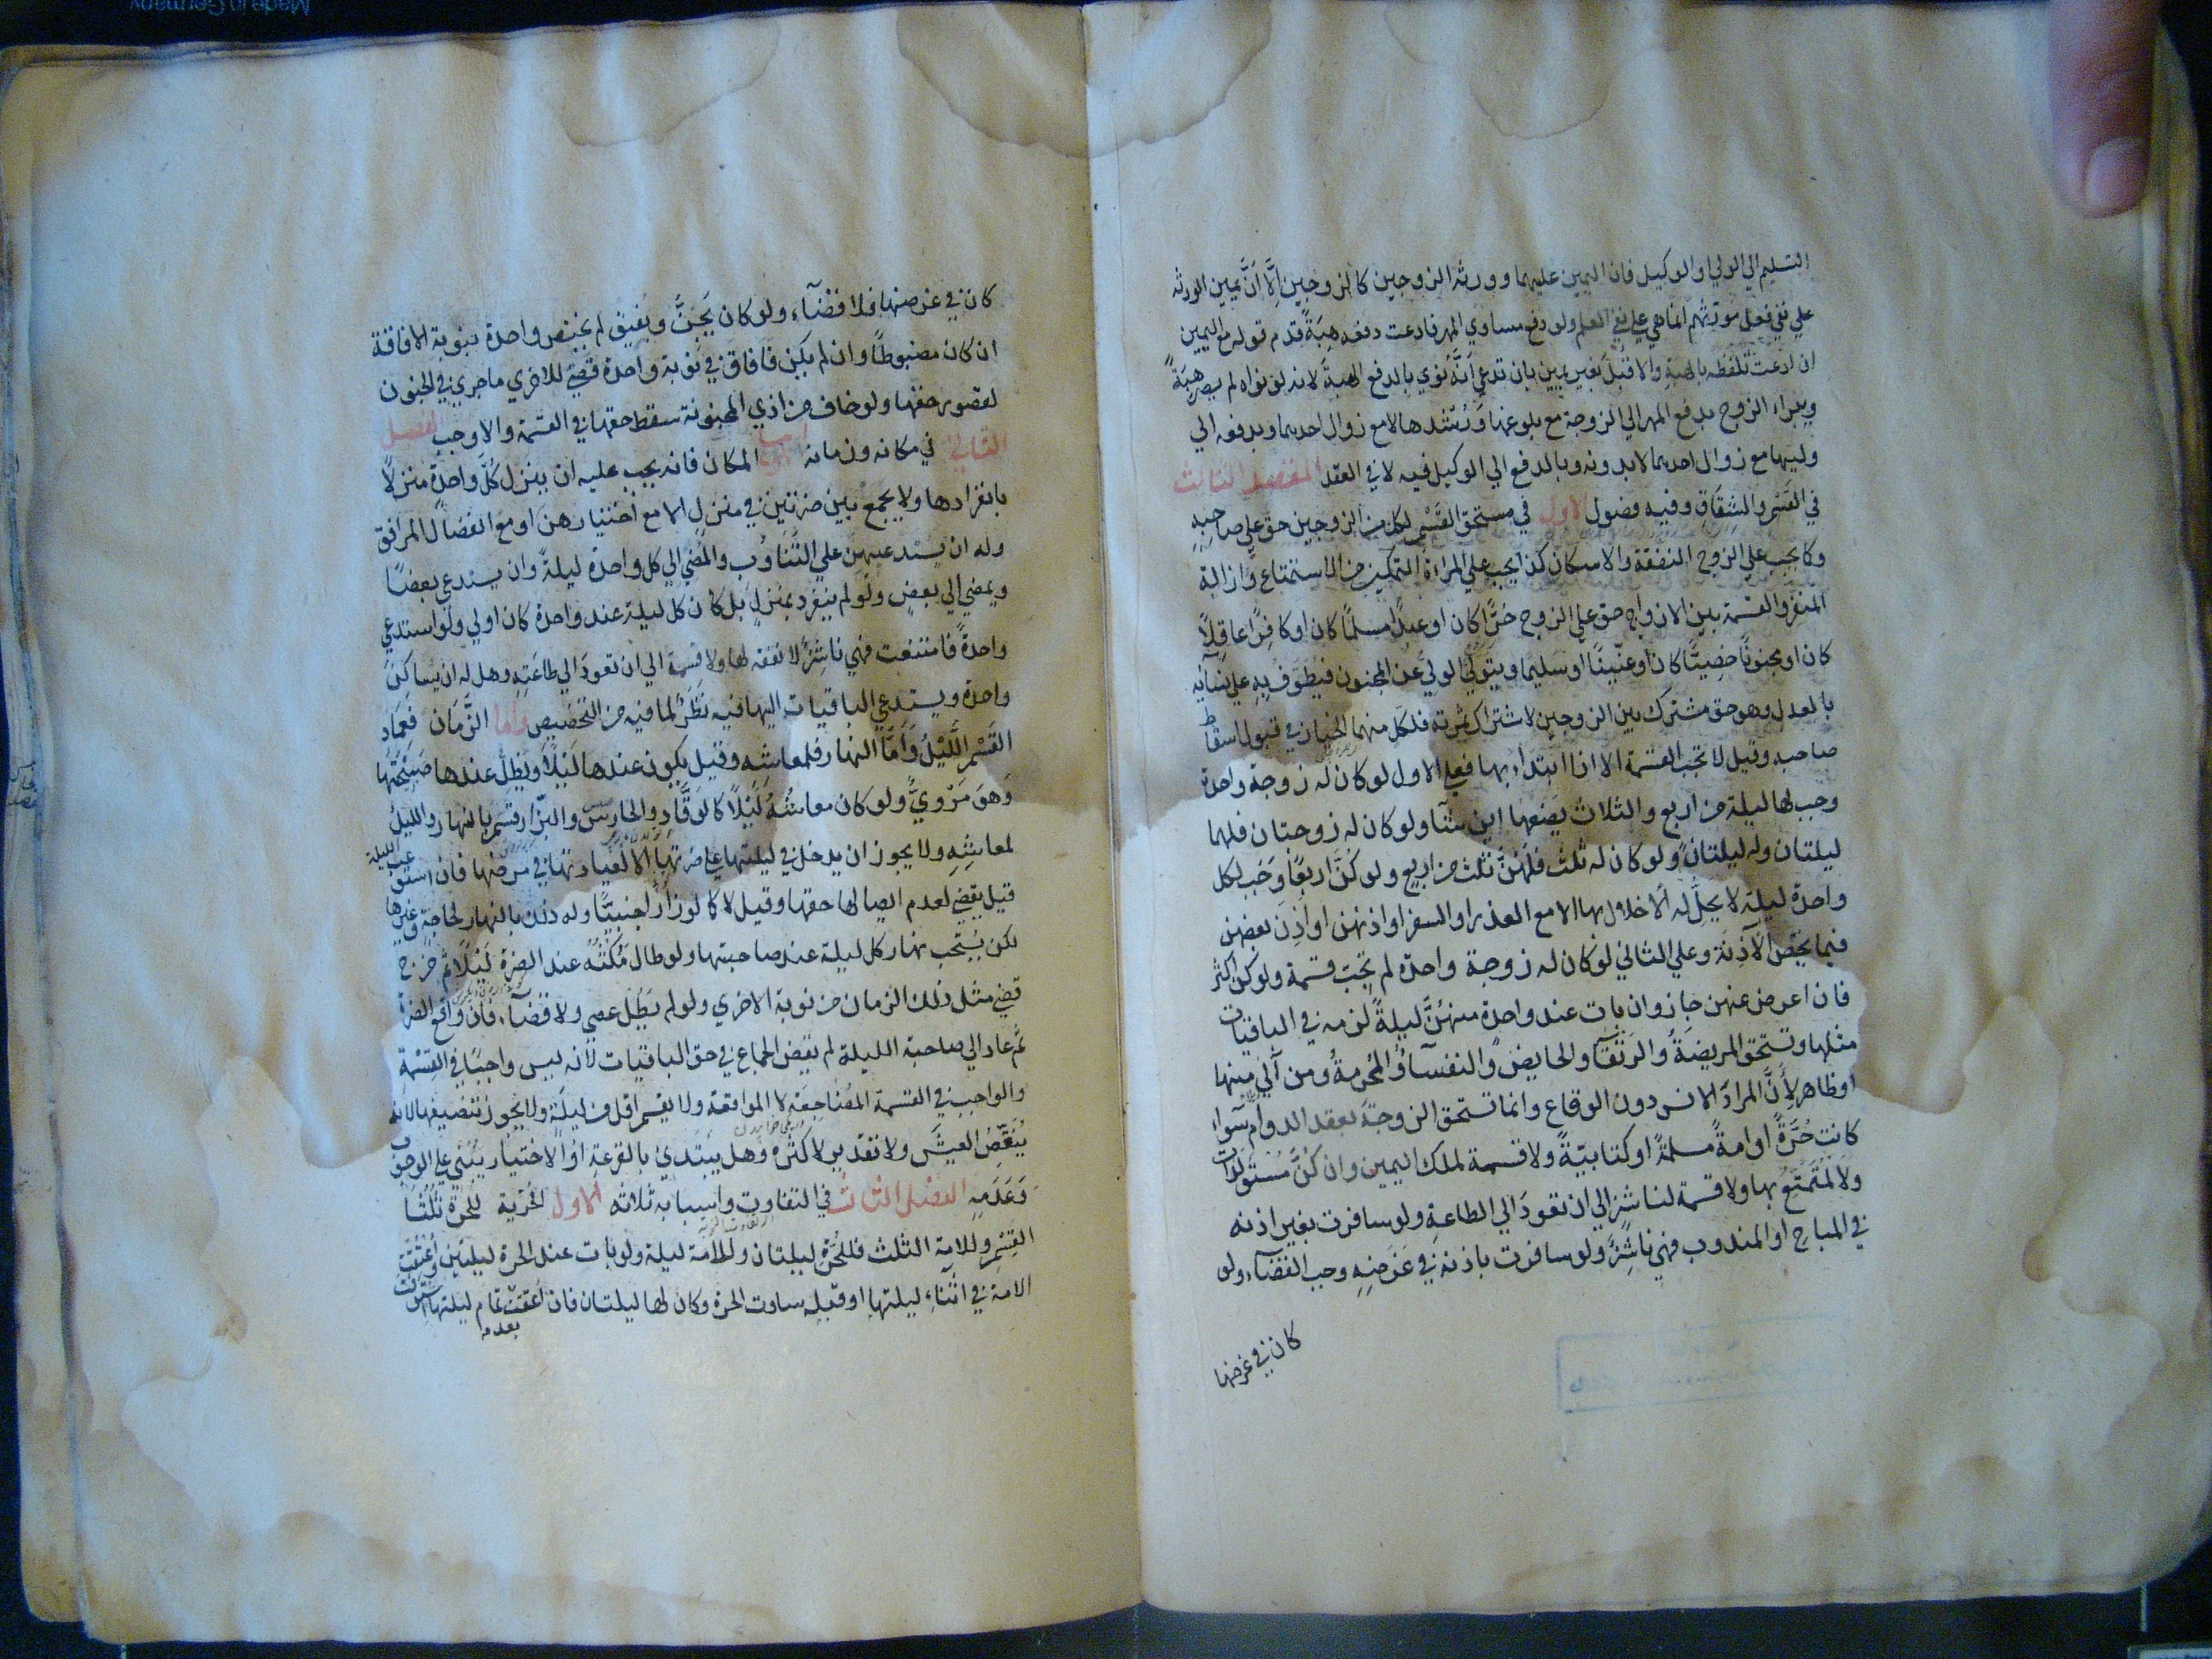 التسليم الي الولي او الوكيل فان اليمين عليهما وورثة الزوجين كالزوجين اِلَّا اَنَّ يمين الورثة
علي نفي فعل مورثهم انما هي علي نفي العلم ولو دفع مساوي المهر فادعت دفعه هِبَةً قدم قوله مع اليمين
ان ادعت تلفظه بالهبة والا قُبِلَ بغير يمين بان تدعي اَنَّه نوي بالدفع الهبة لانه لو نواه لم يصر هِبَةً
ويبراء الزوج بدفع المهر الي الزوجة مع بلوغها وَرُشْدها لا مع زوال احدهما وبدفعه الي
وليها مع زوال احدهما لا بدونه وبالدفع الي الوكيل فيه لا في العقد المقصد الثالث
في القَسْم والشِقَاقِ وفيه فصول الاول في مستحق القَسْم لكل من الزوجين حق علي صاحِبِهِ
وكما يجب علي الزوج النفقة والاسكان كذا يجب علي المراة التمكين من الاستمتاع وَازالة
المنفر والقسمة بين الازواج حق علي الزوج حُرًّا كان او عبدًا مسلمًا كان او كافِرًا عاقِلًا
كان او مجنونًا خصِيًّا كان او عنّينًا او سليما ويتَوَلّي الولي عن المجنون فيطوف بِهِ علي نسائه
بالعدل وهو حق مشترك بين الزوجين لاشتراك ثمرته فلكل منهما الخيار في قبول اسقاط
صاحبه وقيل لا تجب القسمة الا اذا ابتداء بها فعلي الاول لو كان له زوجة واحدة
وجب لها ليلة من اربع والثلاث يَضعها اين شآء ولو كان له زوجتان فلهما
ليلتان وله ليلتان ولو كان له ثلث فلَهُنَّ ثلث من اربع ولو كُنَّ اربعًا وَجَب لكل
واحدة ليلة لا يحِلُّ له الاخلال بها الا مع العذر او السفر او اذنهن او اذِنَ بعضهن
فيما يخصّ الآذِنَة وعلي الثاني لو كان له زوجة واحدة لم يجب قسمة ولو كن اكثر
فان اعرض عنهن جاز وان بات عند واحدة منهُنَّ ليلةً لزمه في الباقيات
مثلها وتستحق المريضَةُ والرَتْقآء والحايضُ والنفسآءُ والمُحْرِمةُ ومن آلي منها
او ظاهر لِاَنَّ المرادَ الانس دون الوقاع وانما تستحق الزوجةُ بعقد الدوام سَوآء
كانت حُرَّةً او امةً مسلمةً او كتابيّةً ولا قسمة لملك اليمين وان كنَّ مُسْتَولَدَات
ولا لمُتَمَتَّعٍ بها ولا قسمة لناشزٍ الي ان تعودَ الي الطاعةِ ولو سافرت بغير اذنه
في المباح او المندوب فهي ناشِزٌ ولو سافرت باذنه في غَرَضِهِ وجب القضآء ولو
كان في غرضها
كان في غرضها فلا قضآء ولو كان يَجَنُّ ويفيق لم يختص واحدة بنوبة الافاقة
ان كان مضبوطًا وان لم يكن فافاق في نوبة واحدة قضي للاخري ما جري في الجنون
لقصور حقها ولو خاف من اذي المجنونة سقط حقها في القسمة والا وجب الفصل
الثاني في مكانه وزمانه اما المكان فانه يجب عليه ان ينزل كُلَّ واحدة منزلًا
بانفرادها ولا يجمع بين ضرتين في منزلٍ الا مع اختيارهن او مع انفصال المرافق
وله ان يستدعيهن علي التَّنَاوُب والمُضي الي كل واحدة ليلةً وان يستدعي بعضًا
ويمضي الي بعضٍ ولو لم ينفرد بمنزلٍ بل كان كل ليلة عند واحدة كان اولي ولو استدعي
واحدةً فامتنعت فهي ناشِزٌ لا نفقه لها ولا قسمة الي ان تعودَ الي طاعَتِهِ وهل له ان يساكِنَ
واحدة ويستدعي الباقيات اليها فيه نَظَرٌ لما فيه من التخصيص واما الزَّمَان فعِمَاد
القَسْم اللَّيْلُ وَاَمَّا النهار فلمعاشِه وقيل يكون عندها لَيْلًا ويَظلّ عندها صَبيحَتَها
وَهوَ مَرْوِيٌّ ولو كان معاشُهُ لَيْلًا كالوَقَّادِ والحارس والبزّار قسم بالنهار والليل
لمعاشِهِ ولا يجوز ان يدخل في ليلتها علي ضرتها اِلّا لعيادتها في مرضها فان استوعب الليلة
قيل يقضي لعدم ايصالها حقها وقيل لا كما لو زارَ اجنبيًّا وله ذلك بالنهار لحاجةٍ وغيرها
لكن يُسْتحب نهار كل ليلة عند صاحبتها ولو طال مَكثُهُ عند الضرة لَيْلًا ثم خرج
قضي مثل ذلك الزمان من نوبة الاخري ولو لم يَطُل عصي ولا قضآء فان واقع الضرة
ثم عاد الي صاحبة الليلة لم يقض الجماع في حق الباقيات لانه ليس واجبًا في القِسْمةِ
والواجب في القسمة المُضاجعَة لا المواقعة ولا يقسم اقل من ليلَة ولا يجوز تنصيفها لانه
يُنَغِّصُ العيشَ ولا تقدير لاكثره وَهل يبتدئ بالقرعة اوِ الاختيار يبتني علي الوجوب
وَعَدَمِهِ الفصل الثالث في التفاوت واسبابه ثلاثه الاول الحُرّية للحرّة ثلُثَا
القِسْم وللامة الثلث فللحُرّة ليلتان وللاَمَة ليلة ولو بات عند الحرة ليلتين واُعتِقَت
الامة في اثناء ليلتها او قبله ساوت الحرة وكان لها ليلتان فان اُعتقت تمام ليلتها
بعد